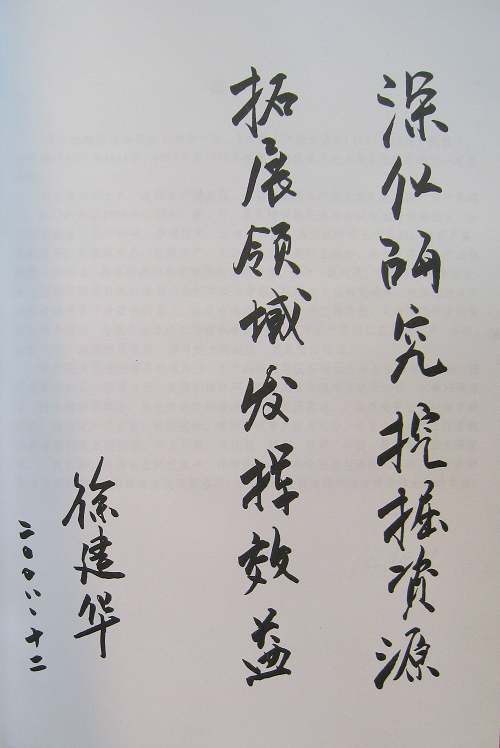 深化研究挖掘资源
拓展领域发挥效益
徐建华
二〇〇八、十二